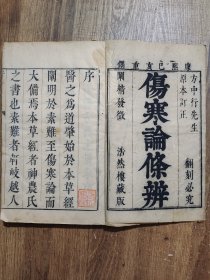 康熙己亥重鐫
方中行先生
原本訂正
翻刻必究
傷寒論條辨
闡精發微
浩然樓藏版
序
醫之為道肇始於本草經
闡明於素難至傷寒論而
大備焉本草經者神農氏
之書也素難者軒岐越人